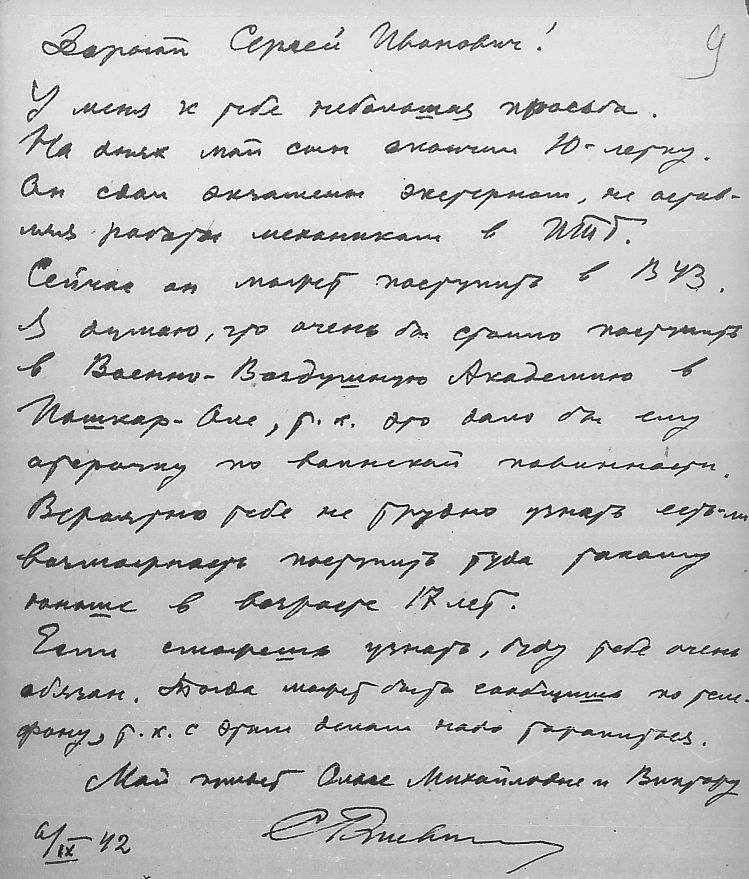 9
Здравств. Сергей Иванович!
У меня к тебе небольшая просьба.
На днях мой сын окончил 10-летку.
Он сдал экзамены экстерном, не остав-
ляя работы механиком в
Сейчас он может поступить в ВУЗ.
Я думаю, что очень бы стоило поступить
в Военно-Воздушную Академию в
Йошкар-Оле, т.к. это дало бы ему
отсрочку по воинской повинности.
Вероятно тебе не трудно узнать есть-ли
возможность поступить туда такому
юноше в возрасте 17 лет.
Если сможешь узнать, буду тебе очень
обязан. Тогда может быть сообщишь по теле-
фону, т.к. с этим делом надо торопиться.
Мой привет Ольге Михайловне и Виктору
/IX 42